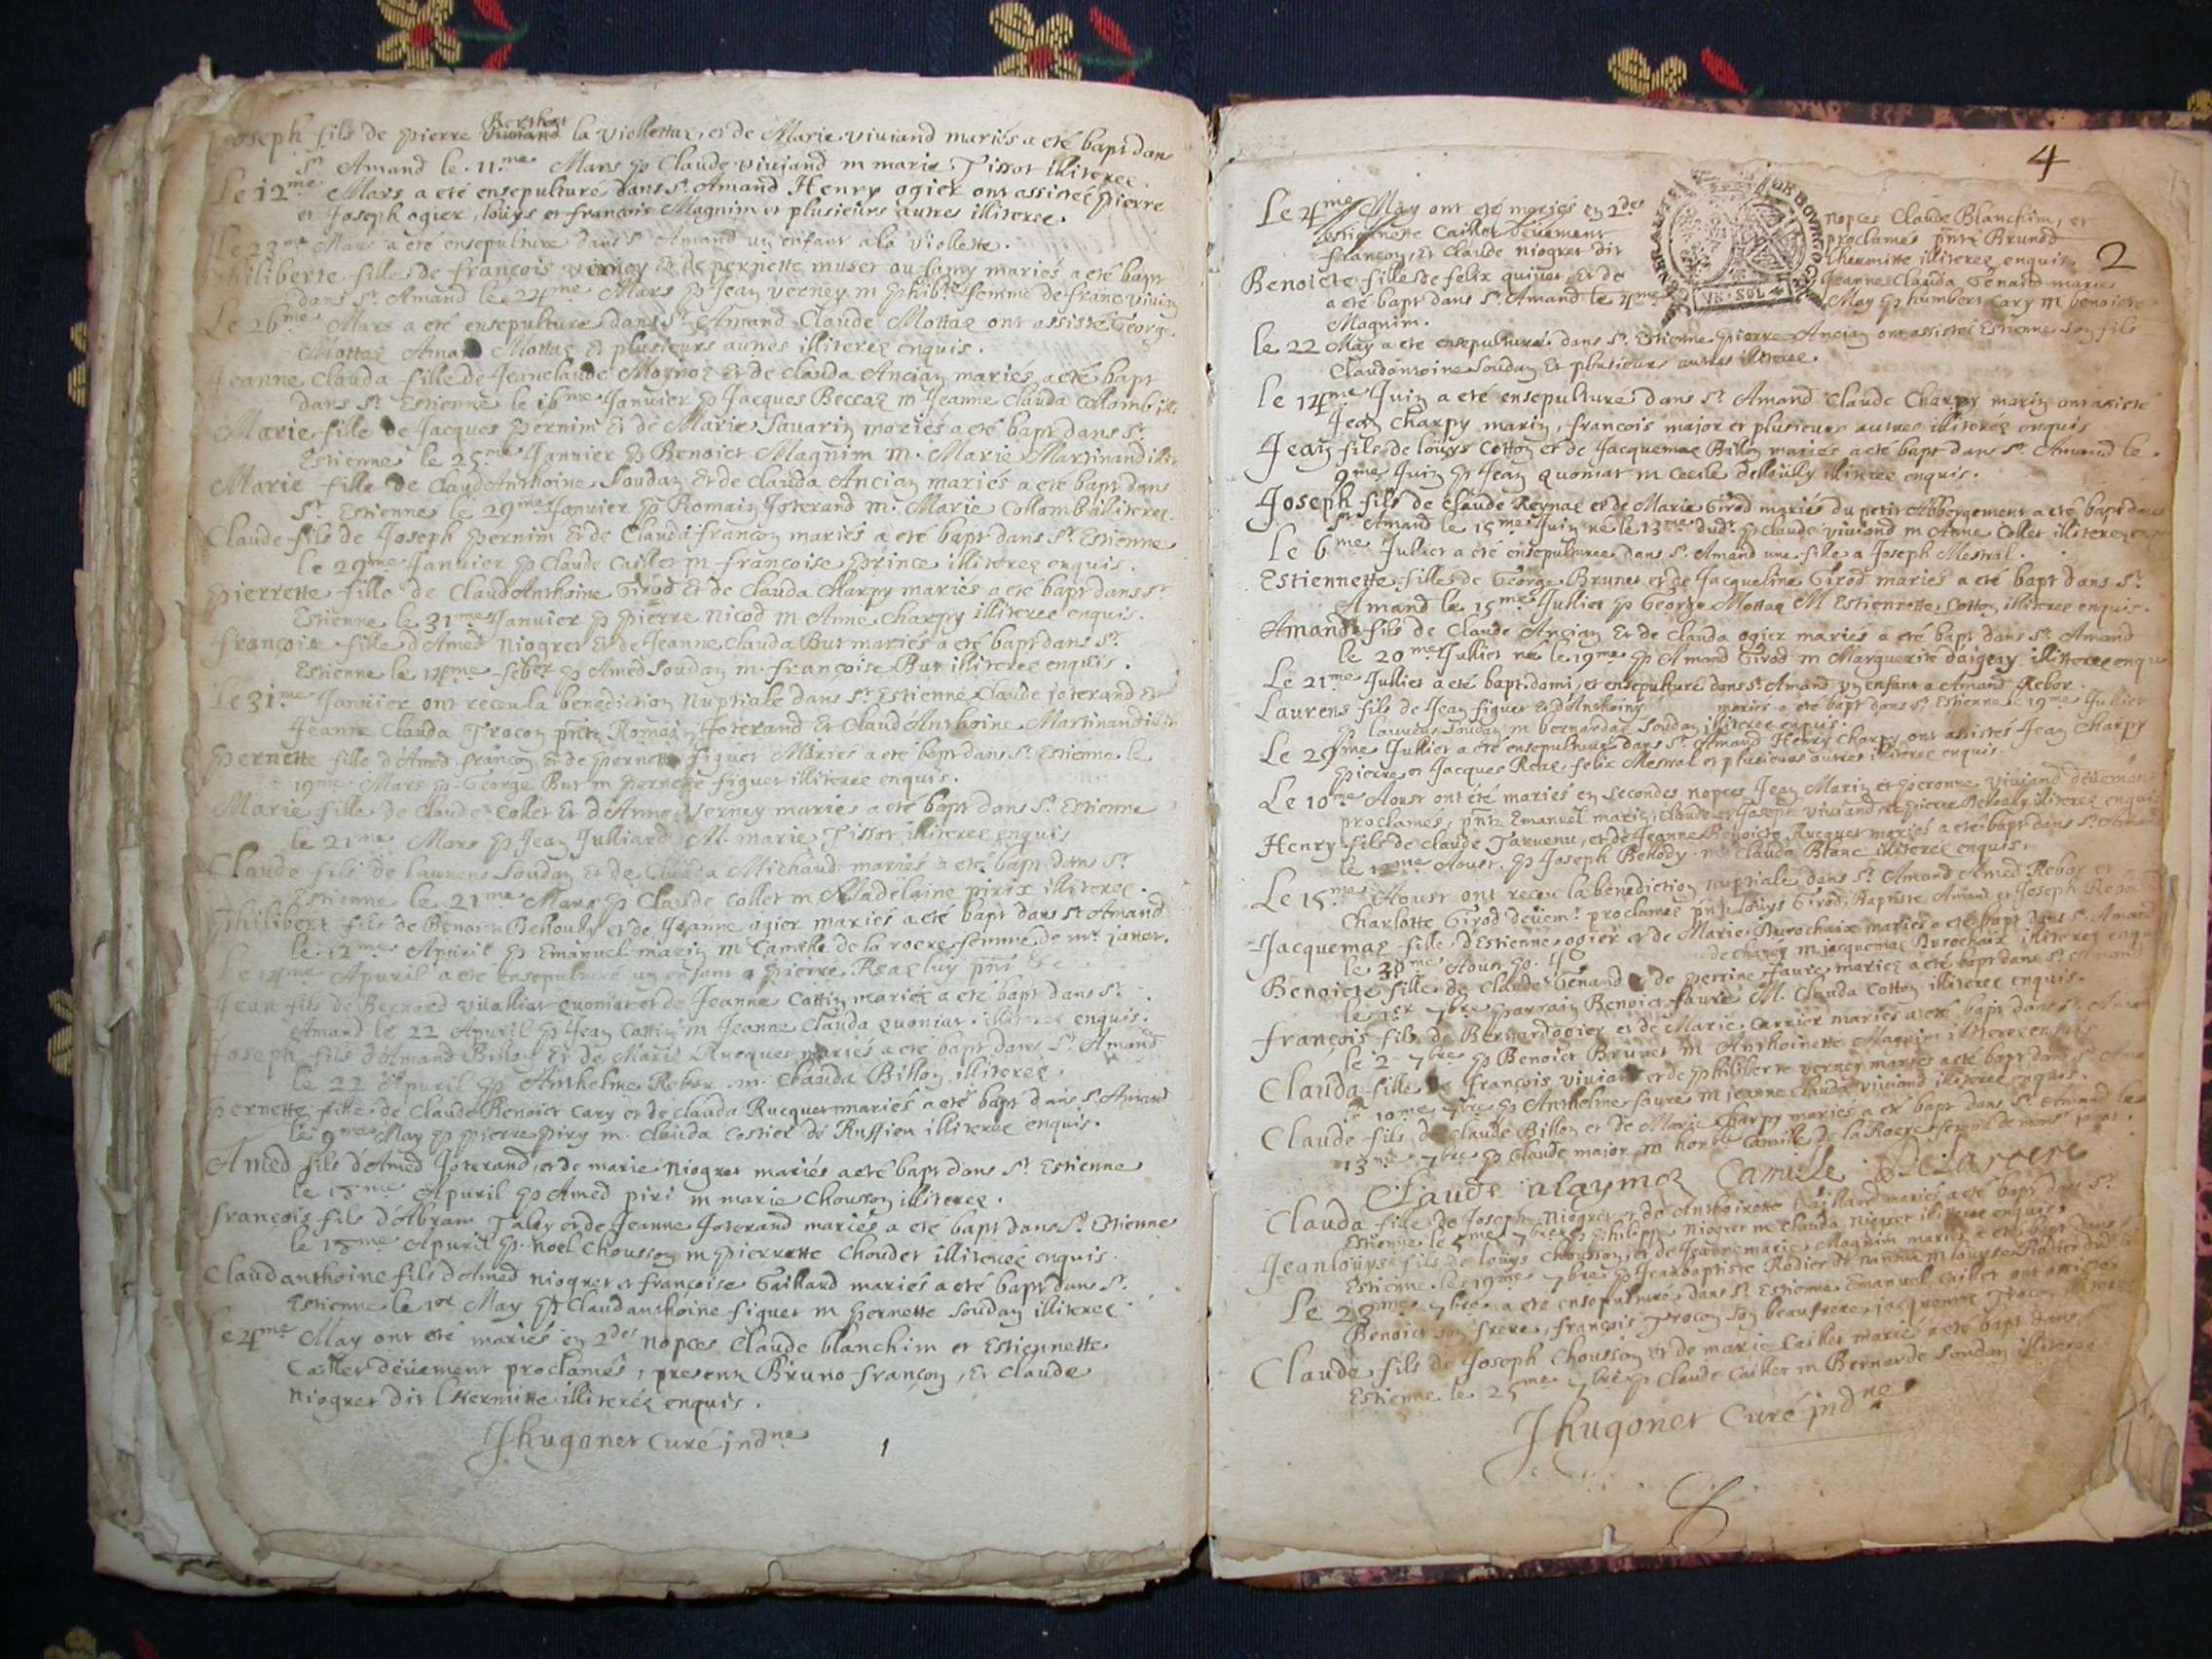 Joseph fils de pierre Berthet la Viollettaz, et de Marie viuiand mariés a eté bapt dans
St. Amand le 11.me Mars p Claude viuiand m marie Tissot illiterez.
Le 12me Mars a eté ensepulturé dans St. Amand Henry ogier ont assisté pierre
et Joseph ogier, loüys et francois Magnim et plusieurs autres illiterez.
Le 23me Mars a eté ensepulturé dans St Amand un enfant a la viollette.
philiberte fille de françois verney et de pernette muset ou famy mariés a eté bapt
dans St. Amand le 24me Mars p Jean verney m phib.te femme de franc viuian
Le 26me Mars a eté ensepulturé dans St Amand Claude Mottaz ont assisté George
Mottaz Amand Mottaz et plusieurs autres illiterez enquis.
Jeanne Clauda fille de Jeanclaude Moynoz et de Clauda Ancian mariés a eté bapt
dans St. Estienne le 16me Janvier p Jacques Beccaz m Jeanne Clauda Collomb ill.
Marie fille de Jacques pernim et de Marie Sauarin mariés a eté bapt dans St.
Estienne le 25me Janvier p Benoict Magnim m. Marie Martinand illi
Marie fille de ClaudAnthoine Soudan et de Clauda Ancian mariés a eté bapt dans
St. Estienne le 29me Janvier p Romain Joterand m. Marie Collomb illiterez.
Claude fils de Joseph pernim et de Clauda françon mariés a eté bapt dans St. Estienne
le 29me Janvier p Claude Caillet m francoise prince illiterez enquis.
pierrette fille de ClaudAnthoine Girod et de Clauda Charpy mariés a eté bapt dans St
Estienne le 31me Janvier p pierre Nicod m Anne Charpy illiterez enquis.
françoise fille d'Amed Niogret et de Jeanne Clauda But mariés a eté bapt dans St.
Estienne le 14me feber p Amed Soudan m. françoise But illiterez enquis.
Le 31.me Janvier ont receu la benediction Nuptiale dans St Estienne Claude joterand et
Jeanne Clauda Trocon pnts Romain Joterand et ClaudAnthoine Martinand illit
pernette fille d'Amed françon et de pernette figuet Mariés a eté bapt dans St. Estienne le
19me Mars p George But m pernette figuet illiterez enquis.
Marie fille de Claude Collet et d'Anne verney mariés a eté bapt dans St. Estienne
le 21me Mars p Jean Julliard M. marie Tissot illiterez enquis
Claude fils de laurens Soudan et de Clauda Michaud mariés a eté bapt dans St.
Estienne le 21me Mars p Claude Collet m Madelaine pirix illiterez.
philibert fils de Benoict Behoully et de Jeanne ogier mariés a eté bapt dans St Amand
le 12me Apuril p Emanuel marin m Camille de la rocre femme de mr janet.
Le 14me Apuril a eté ensepulturé un enfant a pierre Reaz luy pnt &c.
Jean fils de Bernard vualliat quoniat et de Jeanne Cattin mariés a eté bapt dans St.
Amand le 22 Apuril p Jean Cattin m Jeanne Clauda quoniat illiterez enquis.
Joseph fils d'Amand Billon et de Marie Rucquet mariés a eté bapt dans St. Amand
le 22 Apuril p Anthelme Rebor m. Clauda Billon illiterez.
pernette fille de Claude Benoict Cary et de Clauda Rucquet mariés a eté bapt dans St. Amand
le 9me May p pierre piry m. Clauda Costier de Ruffieu illiterez enquis.
Amed fils d'Amed Joterand et de marie Niogret mariés a eté bapt dans St. Estienne
le 15me Apuril p Amed piri m marie Chousson illiterez.
françois fils d'Abram Talex et de Jeanne Joterand mariés a eté bapt dans St. Estienne
le 15me Apuril p. noel Chousson m pierrette Choudet illiterez enquis.
Claudanthoine fils d'Amed Niogret et françoise Gaillard mariés a eté bapt dans St.
Estienne le 1er May p Claudanthoine figuet m pernette Soudan illiterez
Le 4me May ont eté mariés en 2des nopces Claude blanchim et Estiennette
Caillet deüement proclamés, presents Bruno françon, Et Claude
Niogret dit lhermitte illiterez enquis.
Jhugonet Curé jndne
1
4
2
Le 4me May ont eté mariés en 2des nopces Claude Blanchim, et
Estiennette Caillet deüement proclamés pnts Bruno
françon, Et Claude Niogret dit lhermitte illiterez enquis.
VN · SOL
Benoicte fille de felix quiuet, et de Jeanne Clauda Genard mariés
a eté bapt dans St. Amand le 4me May p humbert Cary m benoicte
Magnim.
Le 22 May a eté ensepulturé dans St. Estienne pierre Ancian ont assisté Estienne son fils
Claudantoine Soudan et plusieurs autres illiterez
Le 14me Juin a eté ensepulturé dans St. Amand Claude Charpy marin ont assisté
Jean Charpy marin, françois major et plusieurs autres illiterez enquis
Jean fils de loüys Cotton et de Jacquemaz Billon mariés a eté bapt dans St. Amand le
9me Juin p Jean quoniat m Cecile Behoully illiterez enquis.
Joseph fils de Claude Reynaz et de Marie Girod mariés du petit Abbergement a eté bapt dans
St. Amand le 15me Juin né le 13me dudt. p Claude viuiand m Anne Collet illiterez enquis
Le 6me Jullet a eté ensepulturee dans St. Amand une fille a Joseph Mestral.
Estiennette fille de George Brunet et de Jacqueline Girod mariés a eté bapt dans St.
Amand le 15me Jullet p George Mottaz M Estiennette Cotton illiterez enquis.
Amand fils de Claude Ancian et de Clauda ogier mariés a eté bapt dans St. Amand
le 20me Jullet né le 19me p Amand Girod m Marguerite daigny illiterez enqu
Le 21me Jullet a eté bapt domi, et ensepulturé dans St. Amand un enfant a Amand Rebor.
Laurens fils de Jean figuet et d'Anthoin mariés a eté bapt dans St. Estienne le 19me Jullet
p laurens Soudan m bernardaz Soudan illiterez enquis.
Le 29me Jullet a eté ensepulturé dans St. Amand Henry Charpy ont assistés Jean Charpy
pierre et Jacques Reaz felix Mestral et plusieurs autres illiterez enquis.
Le 10me Aoust ont été mariés en secondes nopces Jean Marin et peronne viuiand deüement
proclamés, pnts Emanuel marin, Claude et Joseph viuiand, et pierre Behoully illiterez enquis
Henry fils de Claude Taruenu, et de Jeanne Benoicte Rucquet mariés a eté bapt dans St. Amand
le 12me Aoust. p Joseph Behody m Clauda Blanc illiterez enquis.
Le 15me Aoust ont receu la benediction nuptiale dans St. Amand Amed Rebor et
Charlotte Girod deüemt. proclamez pnts loüys Girod, Baptiste Amand et Joseph Rebor
Jacquemaz fille d'Estienne ogier et de Marie Durochaix mariés a eté bapt dans St. Amand
le 30me Aoust p. de charez m jacquemaz Durochaix illiterez enqui
Benoicte fille de Claude Genand et de perrine faure mariez a eté bapt dans St. Amand
le 1er 7bre parrain Benoict faure M. Clauda Cotton illiterez enquis.
françois fils de Bernard ogier et de Marie Carrier mariés a eté bapt dans St. Aman
le 2 7bre p Benoict Brunet m Anthoinette Magnim illiterez enquis
Clauda fille de françois viuiand et de philiberte verney mariés a eté bapt dans St. Ama
le 10me 7bre p Anthelme faure m jeanne Clauda viuiand illiterez enquis.
Claude fils de Claude Billon et de Marie Charpy mariés a eté bapt dans St. Amand le
13me 7bre p Claude major m honble Camille de la Rocre femme de monsr janet.
Claude alaymoz Camille Delarocre
Clauda fille de Joseph Niogret et de Anthoinette Gaillard mariés a eté bapt dans St.
Estienne le 5me 7bre p philippe Niogret m Clauda Niogret illiterez enquis.
Jeanloüys fils de loüys Chousson, et de Jeannemarie Magnim mariés a eté bapt dans
Estienne le 19me 7bre p Jeanbaptiste Rodier m loüyse Rodier
Le 23me 7bre a eté ensepulturé dans St. Estienne Emanuel Caillet ont assisté
Benoict son frere, françois Trocon son beaufrere jacquemaz Trocon
Claude fils de Joseph Chousson et de marie Caillet mariés a eté bapt dans
Estienne le 25me 7bre p Claude Caillet m Bernarde Soudan illiterez
Jhugonet Curé jndne